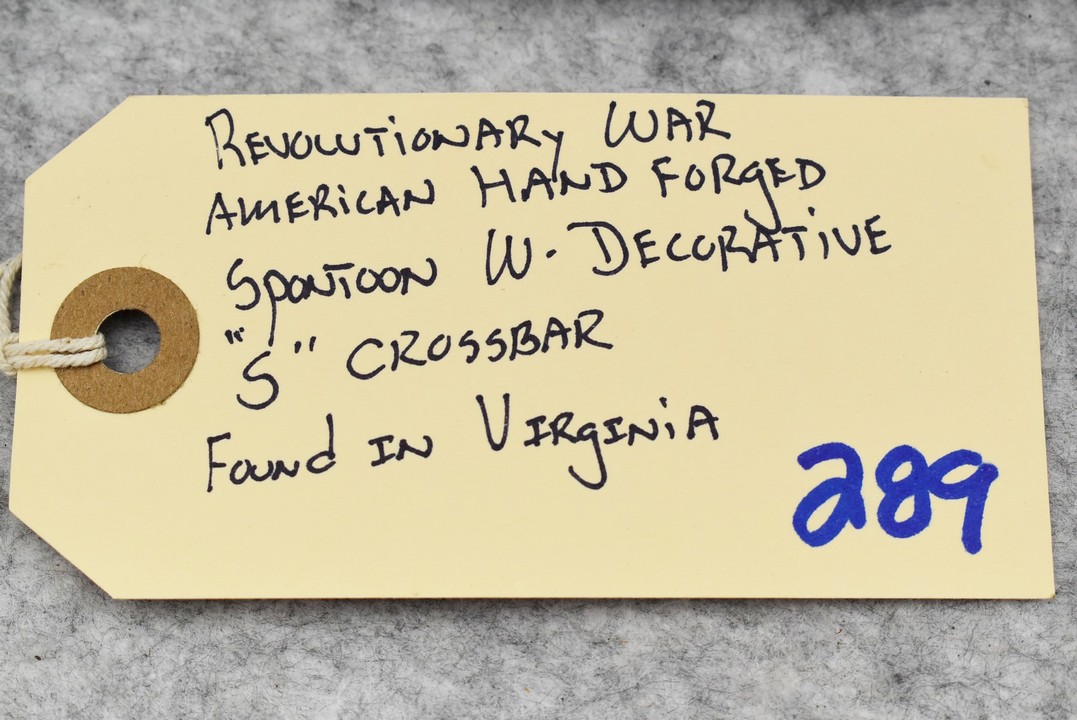 REVOLUTIONARY WAR
AMERICAN HAND FORGED
SPONTOON W. DECORATIVE
"S" CROSSBAR
FOUND IN VIRGINIA
289